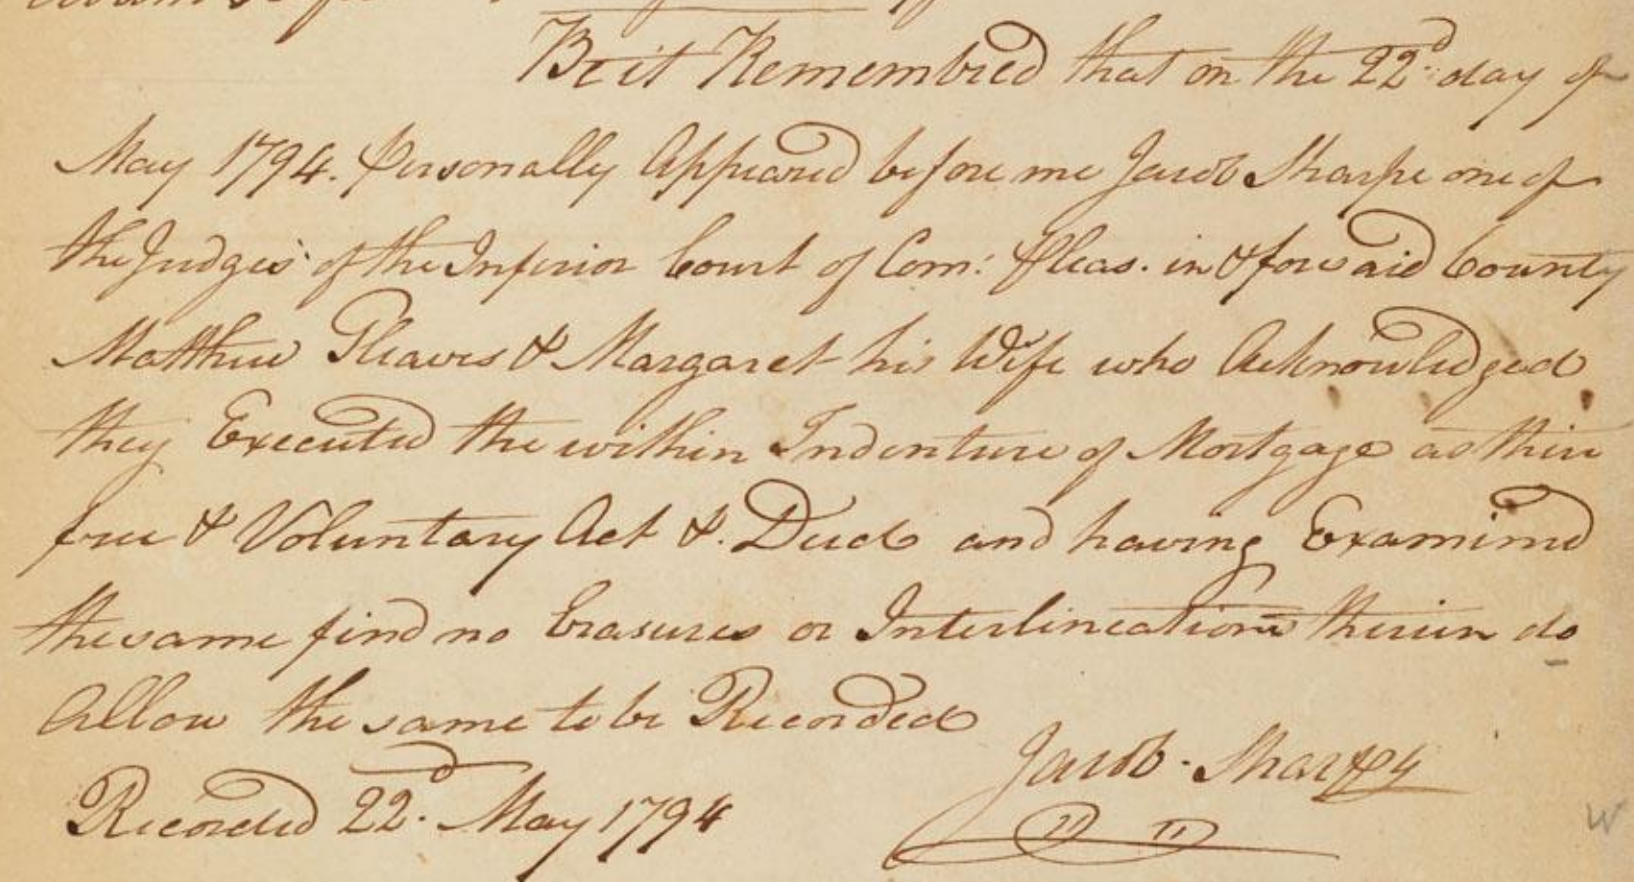 Be it Remembred that on the 22d day of
May 1794. Personally Appeared before me Jacob Sharpe one of
the Judges of the Inferior Court of Com: Pleas. in & for said County
Matthew Gleaves & Margaret his Wife who Acknowledged
they Executed the within Indenture of Mortgage as their
free & Voluntary Act & Deed and having Examined
the same find no Erasures or Interlineations therein do
Allow the same to be Recorded
Jacob. Sharpe
Recorded 22d. May 1794